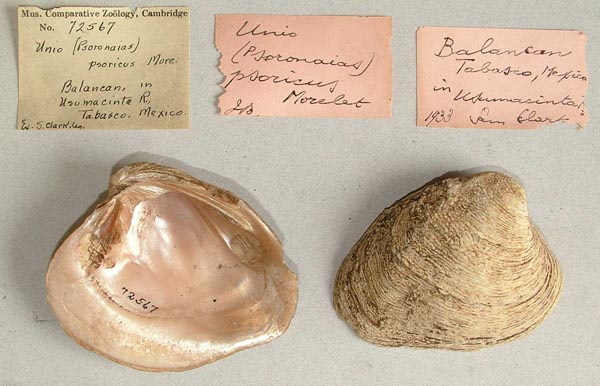 Mus. Comparative Zoölogy, Cambridge
No. 72567
Unio (Psoronaias)
psoricus More.
Balancan, in
Usumacinta R,
Tabasco, Mexico.
Ex. S. Clark
Unio
(Psoronaias)
psoricus
Morelet
Balancan
Tabasco, Mexico
in Usumacinta
1933 Sam Clark
72567